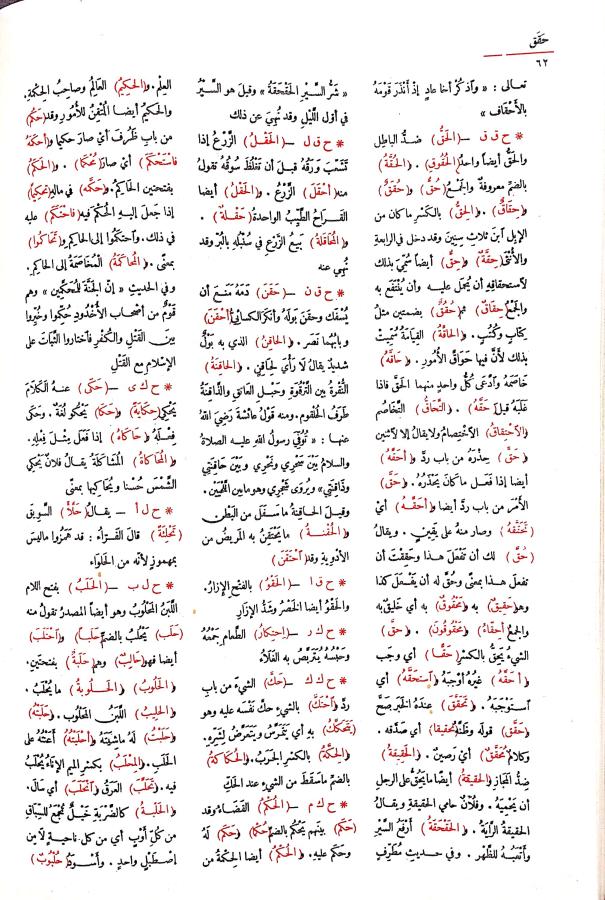 حقق
٦٢
تعالى : « وآذكُرْ أخا عادٍ إذْ أنْذَرَ قَوْمَهُ
بالأحْقاف »
* ح ق ق – (الحَقُّ) ضدُّ الباطِل
والحَقُّ أيضاً واحدُ (الحُقُوقِ) . و(الحُقَّةُ)
بالضم معروفةٌ والجمْعُ (حُقٌّ) و(حُقَقٌ)
و(حِقَاقٌ) . و(الحِقُّ) بالكسْر ماكان من
الإبل آبنَ ثلاثِ سِنينَ وقد دخل فى الرابعة
والأُنْثَى (حِقَّةٌ) و(حِقٌّ) أيضاً سُمِّىَ بذلك
لاسْتحقاقِه أن يُحْمَل عليه وأن يُنْتَفَع به
والجَمْعُ (حِقاقٌ) ثم (حُقُقٌ) بضمتين مثلُ
كِتابٍ وكُتُبٍ . و(الحاقَّةُ) القيامةُ سُمِّيتْ
بذلك لأنَّ فيها حَوَاقَّ الأمُورِ . و(حاقَّهُ)
خاصَمَهُ وآدَّعَى كلُّ واحدٍ منهما الحَقَّ فاذا
غَلَبَهُ قيلَ (حَقَّهُ) . و(التَّحَاقُّ) التَّخاصُم
و(الآحْتِقاقُ) الاخْتِصامُ ولا يقالُ إلا لآثنين
و(حَقَّ) حِذْرَهُ من باب ردَّ و(أحَقَّهُ)
أيضا إذا فَعَل ماكانَ يَحْذَرُه . و(حَقَّ)
الأَمْرَ من باب رد أيضا و(أحَقَّهُ) أى
(تَحَقَّقَهُ) وصار منهُ على يَقِينٍ . ويقالُ
(حُقَّ) لك أن تَفْعَلَ هذا وحَقَقْتَ أن
تفعلَ هذا بمعنًى وحُقَّ له أن يَفْعَلَ كذا
وهو (حَقِيقٌ) به و(مَحْقُوقٌ) به أى خَلِيقٌ به
والجمعُ (أحِقَّاءُ) و(مَحْقُوقُونَ) . و(حَقَّ)
الشىءُ يَحِقُّ بالكسْرِ (حَقًّا) أى وَجَب
و(أحَقَّهُ) غيرُهُ أوْجَبَهُ و(آسْتَحَقَّهُ) أى
آسْتَوْجَبَهُ . و(تَحَقَّقَ) عندَهُ الخَبَرُ صَحَّ
و(حَقَّقَ) قولَه وظنَّهُ (تحقيقا) أى صدَّقه .
وكلامٌ (مُحَقَّقٌ) أى رَصِينٌ . و(الحَقِيقةُ)
ضِدُّ المجَازِ و(الحقيقةُ) أيضا ما يَحِقُّ على الرجلِ
أن يَحْمِيَهُ . وفلانٌ حامى الحقيقةِ ويقالُ
الحقيقةُ الرَّايَةُ . و(الحَقْحَقَةُ) أرْفَعُ السَّيْرِ
وأتْعَبُهُ للظَّهْرِ . وفى حديثِ مُطَرِّفٍ
« شَرُّ السَّيْرِ الحَقْحَقَةُ » وقيلَ هو السَّيْرُ
فى أوّلِ اللَّيْلِ وقد نُهِىَ عن ذلك
* ح ق ل – (الحَقْلُ) الزَّرْعُ إذا
تَشَعَّبَ وَرَقُهُ قبلَ أن تَغْلُظَ سُوقُهُ تقولُ
منه (أحْقَلَ) الزَّرْعُ . و(الحَقْلُ) أيضا
القَراحُ الطَّيِّبُ الواحدةُ (حَقْلَةٌ) .
و(المُحَاقَلَةُ) بَيعُ الزَّرْعِ فى سُنْبُلِهِ بالبُرِّ وقد
نُهِىَ عنه
* ح ق ن – (حَقَنَ) دَمَهُ مَنَعَ أن
يُسْفَك وحقَنَ بَوْلَهُ وأنكر الكسائى (أحْقَنَ)
وبابُهُما نَصَر . و(الحاقِنُ) الذى به بَوْلٌ
شديدٌ يقالُ لا رَأْىَ لحاقِنٍ . و(الحاقِنَةُ)
النُّقْرةُ بين التَّرْقُوَةِ وحَبْلِ العاتِقِ والذَّاقِنَةُ
طَرَفُ الحُلْقُوم . ومنه قَوْلُ عائشةَ رَضِىَ اللهُ
عنها : « تُوُفِّىَ رسولُ اللهِ عليه الصلاة
والسلامُ بَيْنَ سَحْرِى ونَحْرِى وبَيْنَ حاقِنَتِى
وذاقِنَتِى» ويُرْوَى شَجْرِى وهو مابين اللَّحْيَيْن .
وقيلَ الحاقِنةُ ماسَفَل من البَطْن
و(الحُقْنَةُ) ما يُحْقَنُ به المريضُ من
الأدْويةِ وقد (آحْتَقَنَ)
* ح ق ا – (الحَقْوُ) بالفتح الإزارُ .
والحَقْوُ أيضا الخَصْرُ وشَدُّ الإزارِ
* ح ك ر – (احْتِكارُ) الطَّعامِ جَمْعُهُ
وحَبْسُهُ يُتَرَبَّصُ به الغَلَاءُ
* ح ك ك – (حَكَّ) الشىءَ من بابِ
ردَّ و(آحْتَكَّ) بالشىءِ حكَّ نفْسَه عليه وهو
(يَتَحَكَّكُ) به أى يَتَمَرَّسُ ويَتَعَرَّضُ لِشَرِّهِ .
و(الحِكَّةُ) بالكسْرِ الجَرَبُ . و(الحُكَاكَةُ)
بالضم ماسَقَطَ من الشىءِ عند الحَكِّ
* ح ك م – (الحُكْمُ) القَضاءُ وقد
(حَكَمَ) بينَهم يَحْكُم بالضمّ (حُكْما) و(حَكَمَ) لَهُ
وحَكَم عليه . و(الحُكْمُ) أيضا الحِكْمةُ من
العِلْمِ . و(الحَكِيمُ) العالِمُ وصاحِبُ الحِكْمة .
والحَكيمُ أيضا المُتْقِنُ للأُمُورِ وقد (حَكُمَ)
من باب ظَرُفَ أى صارَ حكيما و(أحْكَمَهُ
فاسْتَحْكَمَ) أى صارَ (مُحْكَما) . و(الحَكَمُ)
بفتحتين الحاكِمُ . و(حَكَّمه) فى ماله (تحكِيمًا)
إذا جَعلَ إليهِ الحُكْمَ فيه (فاحْتَكَمَ) عليه
فى ذلك . وآحتكَمُوا إلى الحاكِمِ و(تَحَاكَمُوا)
بمعنًى . و(المُحَاكَمَةُ) المُخَاصَمَةُ إلى الحاكِم .
وفى الحديثِ « إنّ الجنَّةَ للمُحَكَّمِين » وهم
قَوْمٌ من أصْحابِ الأُخْدُودِ حُكِّمُوا وخُيِّرُوا
بينَ القَتْلِ والكُفْرِ فآختارُوا الثَّباتَ على
الإسْلامِ مع القَتْلِ
* ح ك ى – (حَكَى) عنهُ الكَلَامَ
يَحْكِى (حِكَايَةً) و(حَكَا) يَحْكُو لُغَةٌ . وحَكَى
فِعْلَهُ و(حاكاهُ) إذا فَعَلَ مِثْلَ فِعْلِه .
و(المُحَاكاةُ) المُشَاكَلَةُ يقالُ فلانٌ يَحْكِى
الشَّمْسَ حُسْنا ويُحاكِيها بمعنًى
* ح ل أ – يقالُ (حَلَّأَ) السَّوِيقَ
(تَحْلِئَةً) قال الفَرَّاءُ : قد هَمَزُوا ماليسَ
بمهموزٍ لأنَّه من الحَلْواءِ
* ح ل ب – (الحَلَبُ) بفتح اللام
اللَّبَنُ المَحْلُوبُ وهو أيضاً المصدرُ تقولُ منه
(حَلَبَ) يَحْلُبُ بالضم (حَلَبًا) و(آحْتَلَبَ)
أيضا فهو (حالِبٌ) وهم (حَلَبَةٌ) بفتحتين .
و(الحَلُوبُ) و(الحَلُوبةُ) ما يُحْلَبُ .
و(الحَلِيبُ) اللَّبَنُ المَحْلُوبُ . و(حَلَبْتُهُ)
و(حَلَبْتُ) لَهُ ماشِيَتَهُ و(أحْلَبْتُهُ) أعَنْتُهُ على
الحَلَبِ . و(المِحْلَبُ) بكسْرِ الميم الإناءُ يُحْلَبُ
فيه . و(تَحَلَّبَ) العَرَقُ و(آنْحَلَبَ) أى سَالَ .
و(الحَلْبَةُ) كالضَّرْبة خَيْلٌ تُجْمَعُ للسِّباقِ
من كُلِّ أوْبٍ أى من كل ناحيةٍ لا من
إصْطَبْلٍ واحدٍ . وأسْوَدُ (حُلْبُوبٌ)